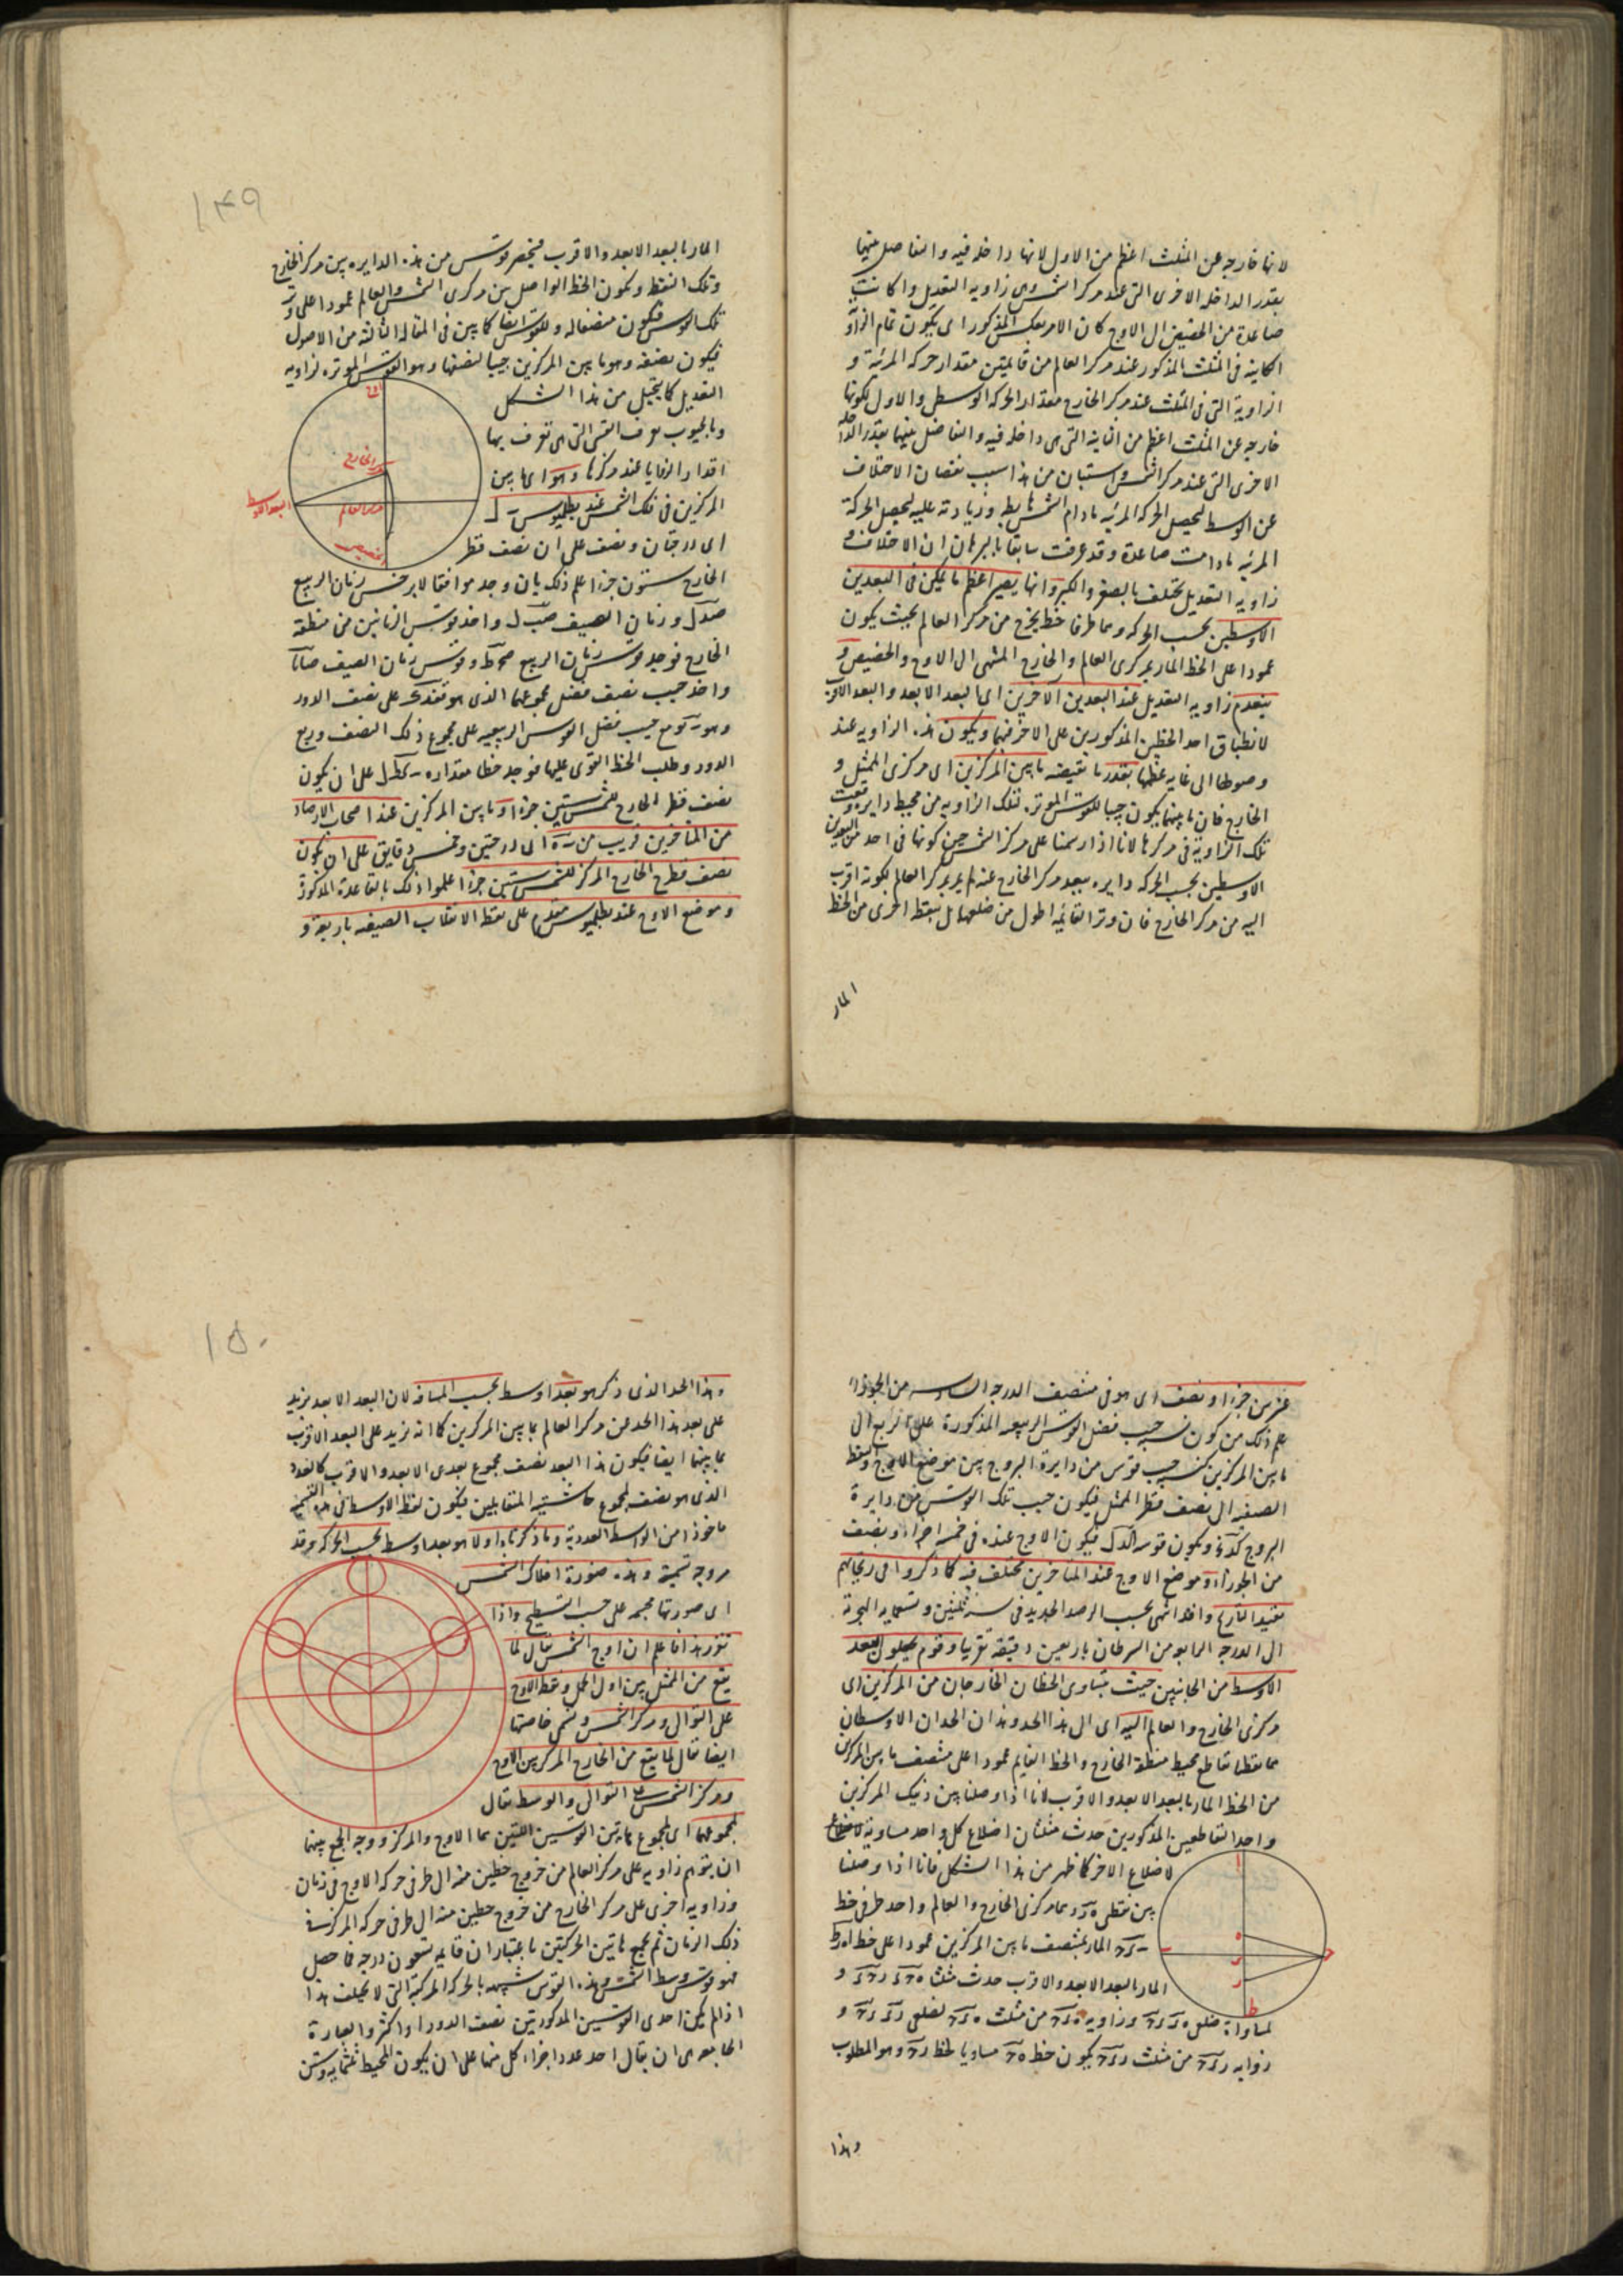 لانها خارجه عن المثلث اعظم من الاول لانها داخله فيه والتفاضل بينهما
بقدر الداخله الاخرى التى عند مركز الشمس وهى زاويه التعديل واكانت
صاعدة من الحضيض الى الاوج كان الامر بعكس المذكور اى يكون تمام الزاوية
الكاينه فى المثلث المذكور عند مركز العالم من قايمتين مقدار حركه المرئية و
الزاوية التى فى المثلث عند مركز الخارج مقدار الحركه الوسطى والاول لكونها
خارجه عن المثلث اعظم من الثانيه التى هى داخله فيه والتفاضل بينهما بقدر الداخله
الاخرى التى عند مركز الشمس واستبان من هذا سبب نقصان الاختلاف
عن الوسط ليحصل الحركه المرئيه مادام الشمس هابطه وزيادته عليه ليحصل الحركة
المرئيه مادامت صاعدة وقد عرفت سابقا بالبرهان ان الاختلاف و
زاويه التعديل تختلف بالصغر والكبر وانها يصير اعظم ما يمكن فى البعدين
الاوسطين بحسب الحركه وهما طرفا خط يخرج من مركز العالم بحيث يكون
عمودا على الخط المار بمركزى العالم والخارج المنتهى الى الاوج والحضيض و
ينعدم زاويه التعديل عند البعدين الآخرين اى البعد الابعد والبعد الاقرب
لانطباق احد الخطين المذكورين على الاخر فيهما ويكون هذه الزاويه عند
وصولها الى غايه عظمها بقدر ما نقيضه ما بين المركزين اى مركزى الممثل و
الخارج فان ما بينهما يكون جيبا للقوس الموتره لتلك الزاويه من محيط دايره وقعت
تلك الزاوية فى مركزها لانا اذا رسمنا على مركز الشمس حين كونها فى احد البعدين
الاوسطين بحسب الحركه دايره ببعد مركز الخارج عنه لم يمر بمركز العالم لكونه اقرب
اليه من مركز الخارج فان وتر القايمه اطول من ضلعها بل بنقطه اخرى من الخط
المار
١٤٩
المار بالبعد الابعد والاقرب فيحصر قوس من هذه الدايره بين مركز الخارج
وتلك النقطه ويكون الخط الواصل بين مركزى الشمس والعالم عمودا على وتر
تلك القوس فيكون منصفا له وللقوس ايضا كما بين فى المقاله الثالثه من الاصول
فيكون نصفه وهو ما بين المركزين جيبا لنصفها وهو القوس الموتره لزاويه
التعديل كما يتخيل من هذا الشكل
وبالجيوب يعرف القسى التى هى تعرف بها
اقدار الزوايا عند مركزها وهو اى ما بين
المركزين فى فلك الشمس عند بطلميوس ب ل
اى درجتان ونصف على ان نصف قطر
الخارج ستون جزءا علم ذلك بان وجد موافقا لابرخس زمان الربيع
صد ل وزمان الصيف صب ل واخذ قوسى الزمانين من منطقه
الخارج فوجد قوس زمان الربيع وقوس زمان الصيف
واخذ جيب نصف فضل مجموعهما الذى هو على نصف الدور
وهو مع جيب فضل القوس الربيعيه على مجموع ذلك النصف وربع
الدور وطلب الخط القوى عليهما فوجد خطا مقداره على ان يكون
نصف قطر الخارج للشمس ستين جزءا وما بين المركزين عند اصحاب الارصاد
من المتاخرين قريب من ب ه اى درجتين وخمس دقايق على ان يكون
نصف قطر الخارج المركز للشمس ستين جزءا علموا ذلك بالقاعدة المذكورة
وموضع الاوج عند بطلميوس متقدم على نقطه الانقلاب الصيفيه باربعة و
اوج
مركز الخارج
مركز العالم
البعد الاوسط
حضيض
عشرين جزءا ونصف اى هو فى منتصف الدرجه السادسه من الجوزاء
علم ذلك من كون نسبه جيب فضل القوس الربيعيه المذكورة على الربع الى
ما بين المركزين كنسبه جيب قوس من دايرة البروج بين موضع الاوج والنقطه
الصيفيه الى نصف قطر الممثل فيكون جيب تلك القوس من دايرة
البروج ويكون قوسه كد ل فيكون الاوج عنده فى خمسه اجزاء ونصف
من الجوزاء وموضع الاوج عند المتاخرين مختلف فيه كما ذكروا فى زيجاتهم
مقيد التاريخ وافد انتهى بحسب الرصد الجديد فى سنه وتسعمايه الهجرية
الى الدرجه الرابعه من السرطان باربعين دقيقه تقريبا وقوم يجعلون البعد
الاوسط من الجانبين حيث يتساوى الخطان الخارجان من المركزين اى
مركزى الخارج والعالم اليه اى الى هذا الحد وهذان الحدان الاوسطان
هما نقطتا تقاطع محيط منطقة الخارج والخط القايم عمودا على منتصف ما بين المركزين
من الخط المار بالبعد الابعد والاقرب لانا اذا وصلنا بين ذينك المركزين
واحد التقاطعين المذكورين حدث مثلثان اضلاع كل واحد مساوية
لاضلاع الاخر كما ظهر من هذا الشكل فانا اذا وصلنا
بين نقطتى ه ر وهما مركزى الخارج والعالم واحد طرفى خط
المار بمنتصف ما بين المركزين عمودا على خط
المار بالبعد الابعد والاقرب حدث مثلثا
لمساواة ضلعى وزاويه من مثلث لضلعى و
زوايه من مثلث يكون خط مساويا لخط وهو المطلوب
وهذا
١٥٠
وهذا الحد الذى ذكر هو بعد اوسط بحسب المسافه لان البعد الابعد يزيد
على بعد هذا الحد عن مركز العالم بما بين المركزين كما انه يزيد على البعد الاقرب
بما بينهما ايضا فيكون هذا البعد نصف مجموع بعدى الابعد والاقرب كالعدد
الذى هو نصف لمجموع حاشيتيه المتقابلين فيكون لفظ الاوسط فى هذه التسميه
ماخوذا من الواسطه العدديه وما ذكرناه اولا هو بعد اوسط بحسب الحركه وقد
مر وجه تسميته وهذه صورة افلاك الشمس
اى صورتها مجسمه على حسب التسطيح واذا
تقرر هذا فاعلم ان اوج الشمس يقال لما
يقع من الممثل بين اول الحمل ونقطة الاوج
على التوالى ومركز الشمس ويسمى خاصتها
ايضا يقال لما يقع من الخارج المركز بين الاوج
ومركز الشمس على التوالى والوسط يقال
لمجموعهما اى لمجموع هاتين القوسين اللتين هما الاوج والمركز ووجه الجمع بينهما
ان يتوهم زاويه على مركز العالم من خروج خطين منه الى طرفى حركه الاوج فى زمان
وزاويه اخرى على مركز الخارج من خروج خطين منه الى طرفى حركه المركز فى
ذلك الزمان ثم يجمع هاتين الحركتين باعتبار ان قايمه تسعون درجه فما حصل
فهو قوس وسط الشمس وهذه القوس شبيهه بالحركه المركبة التى لا يختلف هذا
اذا لم يكن احدى القوسين المذكورتين نصف الدور او اكثر والعبارة
الجامعه هى ان يقال احد عدد اجزاء كل منهما على ان يكون المحيط ثلثمايه وستين